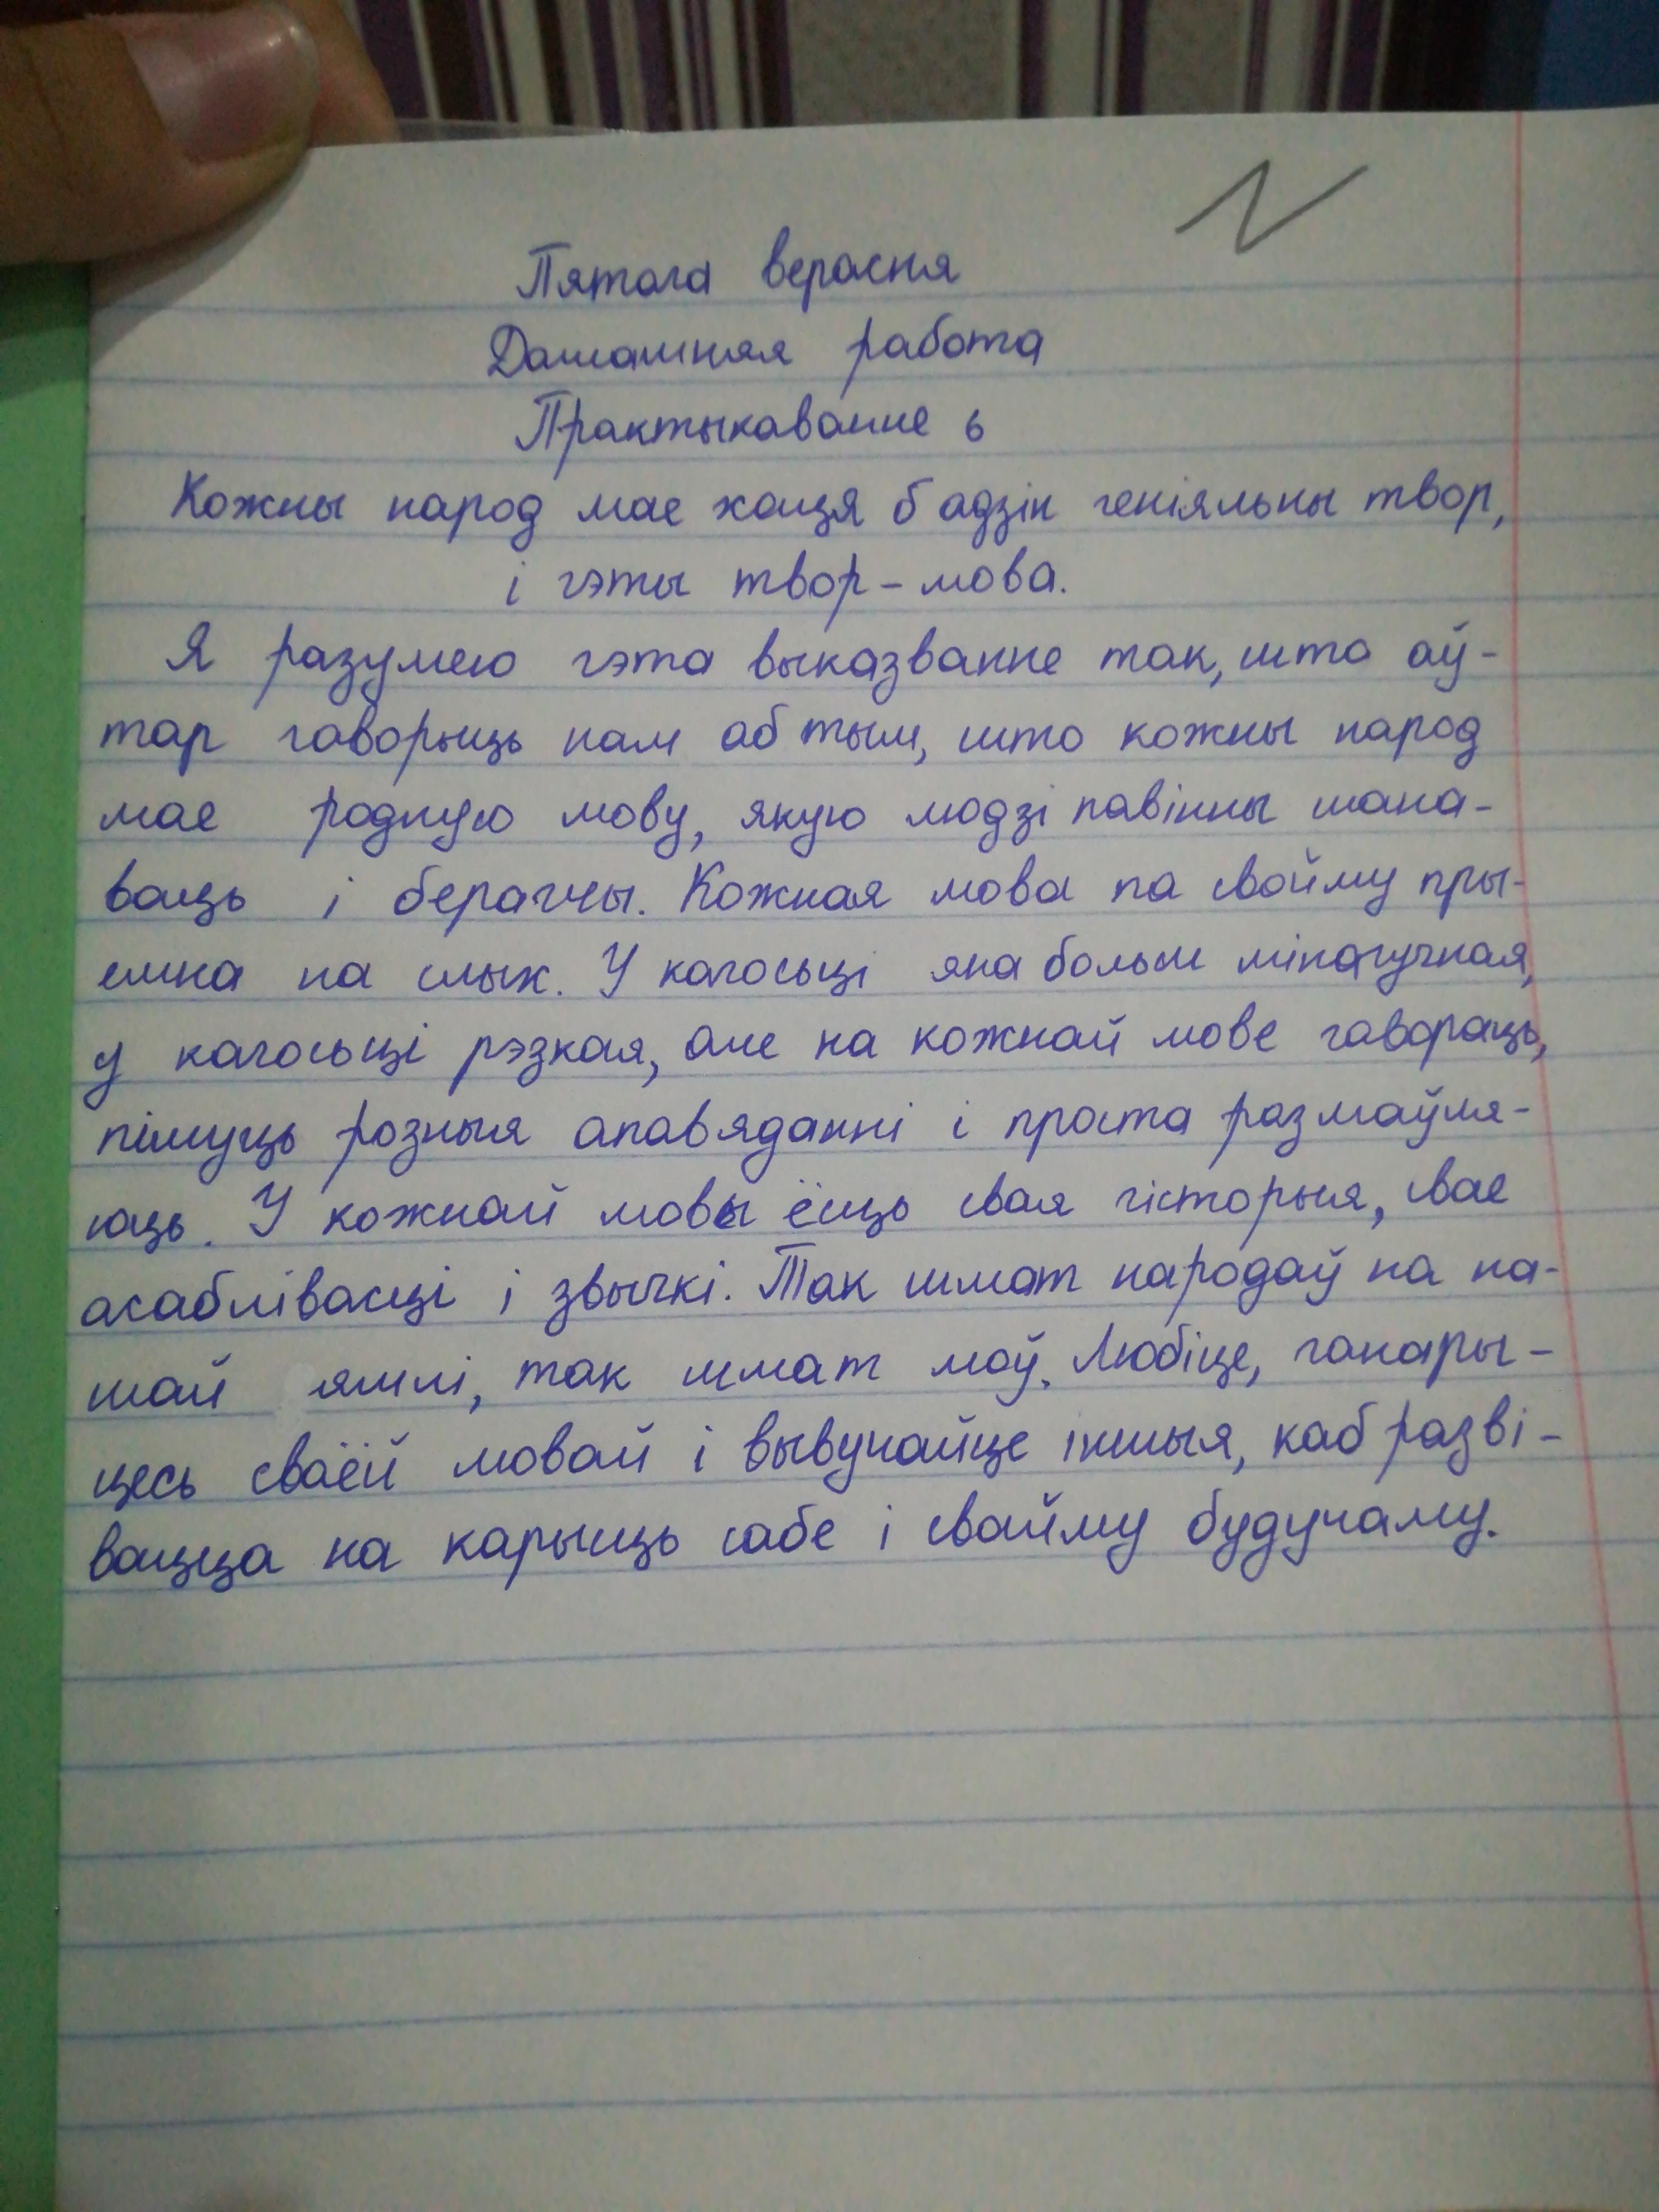 Пятага верасня
Дамашняя работа
Практыкаванне 6
Кожны народ мае хаця б адзін геніяльны твор,
і гэты твор - мова.
Я разумею гэта выказванне так, што аў-
тар гаворыць нам аб тым, што кожны народ
мае родную мову, якую людзі павінны шана-
ваць і берагчы. Кожная мова па свойму пры-
емна на слых. У кагосьці яна больш мілагучная,
у кагосьці рэзкая, але на кожнай мове гавораць,
пішуць розныя апавяданні і проста размаўля-
юць. У кожнай мовы ёсць свая гісторыя, свае
асаблівасці і звычкі. Так шмат народаў на на-
шай зямлі, так шмат моў. Любіце, ганары-
цесь сваёй мовай і вывучайце іншыя, каб разві-
вацца на карысць сабе і свайму будучаму.